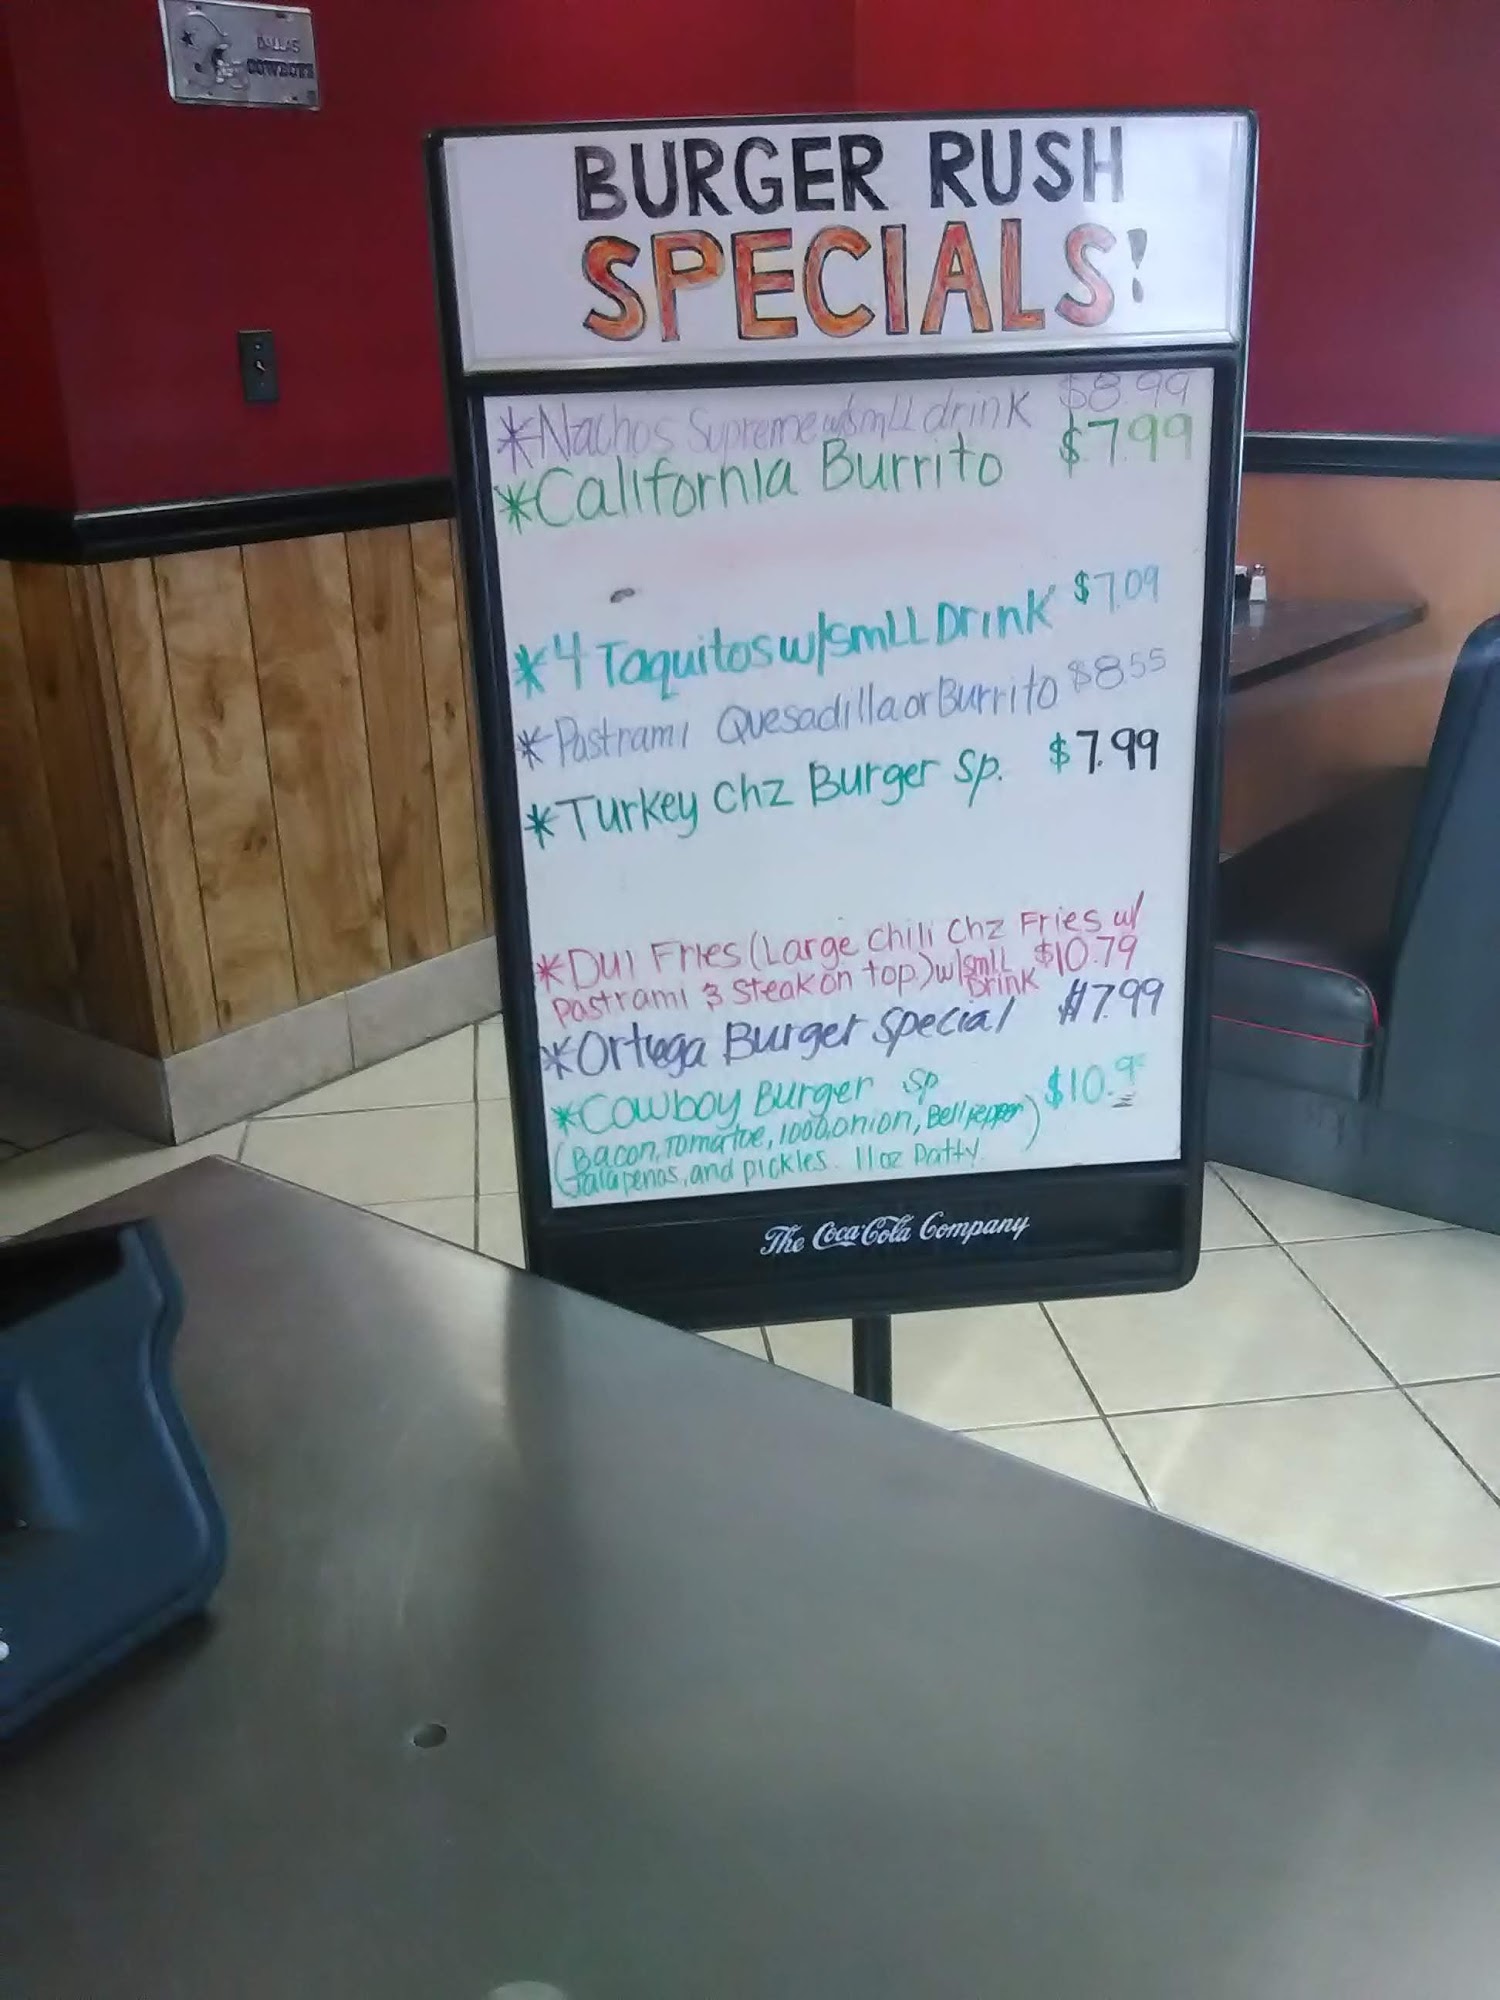 DALLAS
COWBOYS
BURGER RUSH
SPECIALS!
*Nachos Supreme w/smLL drink $8.99
*California Burrito $7.99
*4 Taquitos w/smLL Drink $7.09
*Pastrami Quesadilla or Burrito $8.55
*Turkey Chz Burger Sp. $7.99
*Dui Fries (Large Chili Chz Fries w/
Pastrami & Steak on top.) w/smLL Drink $10.79
*Ortega Burger Special $7.99
*Cowboy Burger Sp
(Bacon, Tomatoe, 1000, Onion, Bell pepper) $10.
Jalapenos, and pickles. 11oz Patty.
The Coca-Cola Company